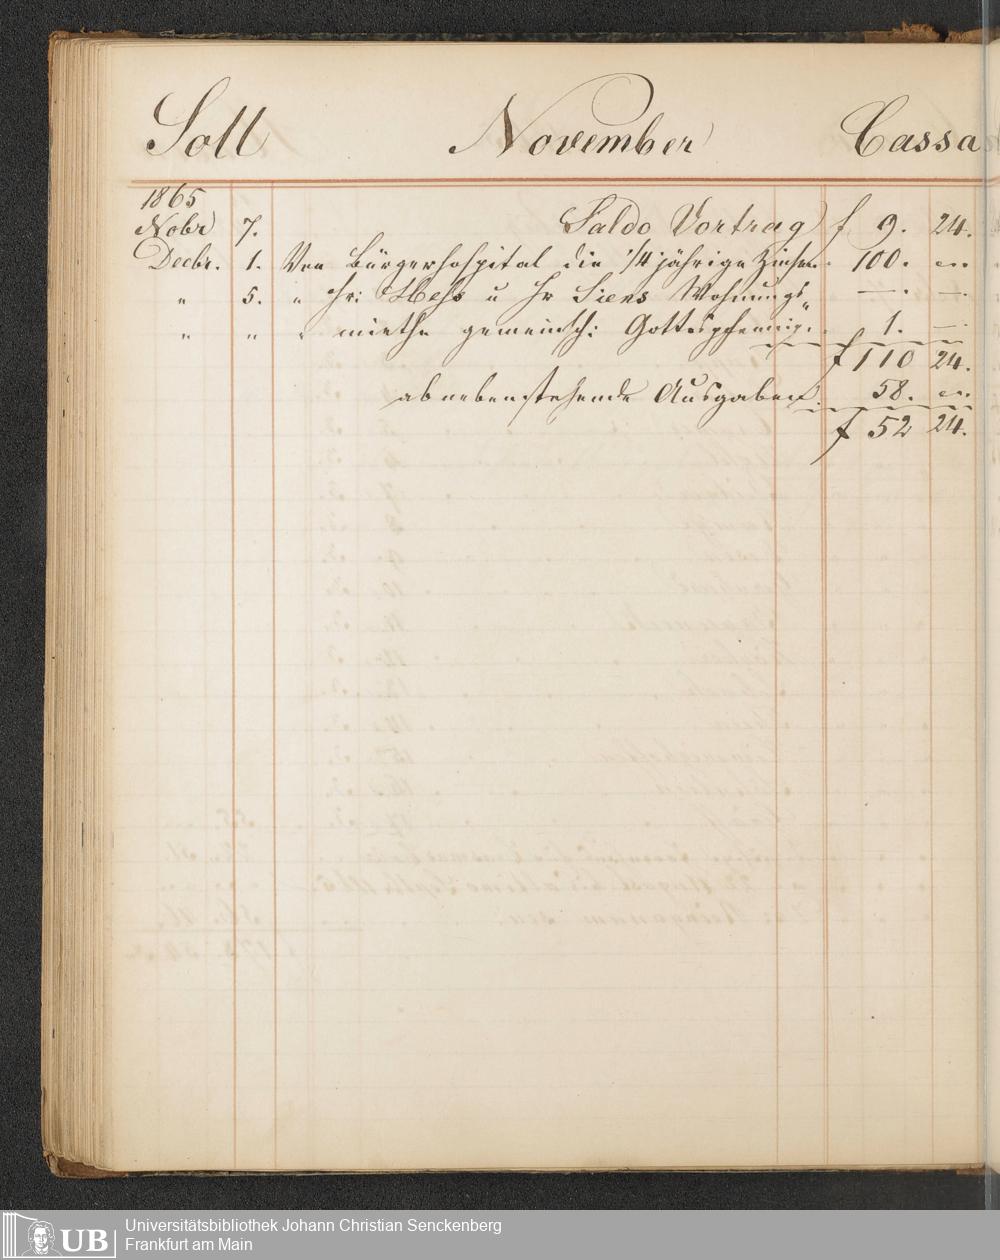 Soll November Cassa
1865
Nobr 7. Saldo Vortrag f 9. 24.
Decbr. 1. Von Bürgerhospital die 1/4 jährige Zinsen. 100. "
" 5. " Hr: Hess u Hr Siers Wohnungs" —. —
" " " miethe gemeinsch: Gottespfennig. 1. —
f 110 24.
ab nebenstehende Ausgaben. 58. "
f 52 24.
UB Universitätsbibliothek Johann Christian Senckenberg
Frankfurt am Main